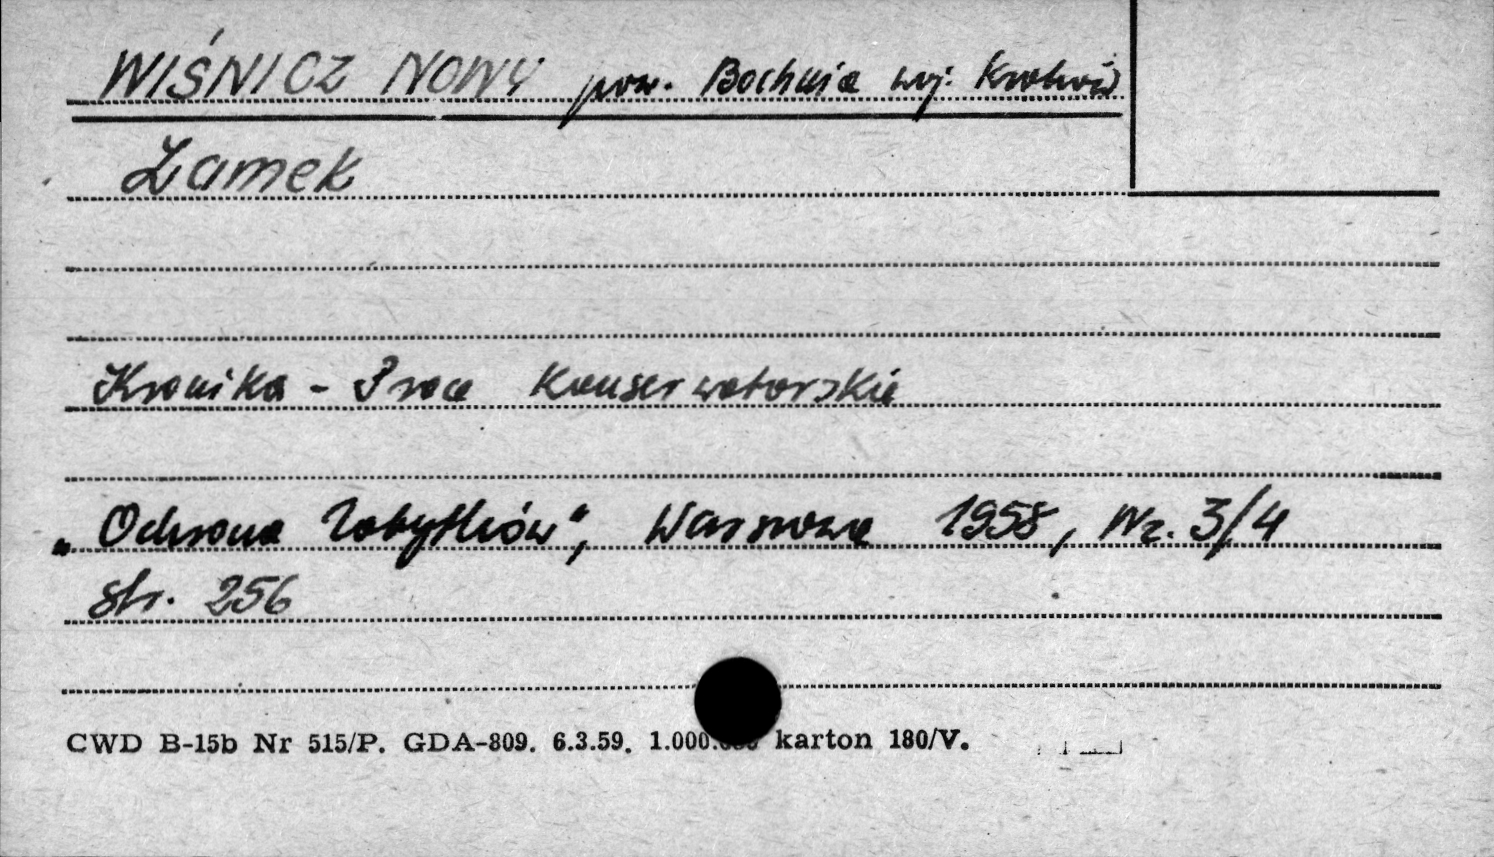 WIŚNICZ NOWY pow. Bochnia woj. Kraków
Zamek
Kronika - Prace Konserwatorskie
„Ochrona Zabytków", Warszawa 1958, Nr. 3/4
str. 256
CWD B-15b Nr 515/P. GDA-809. 6.3.59. 1.000.000 karton 180/V.